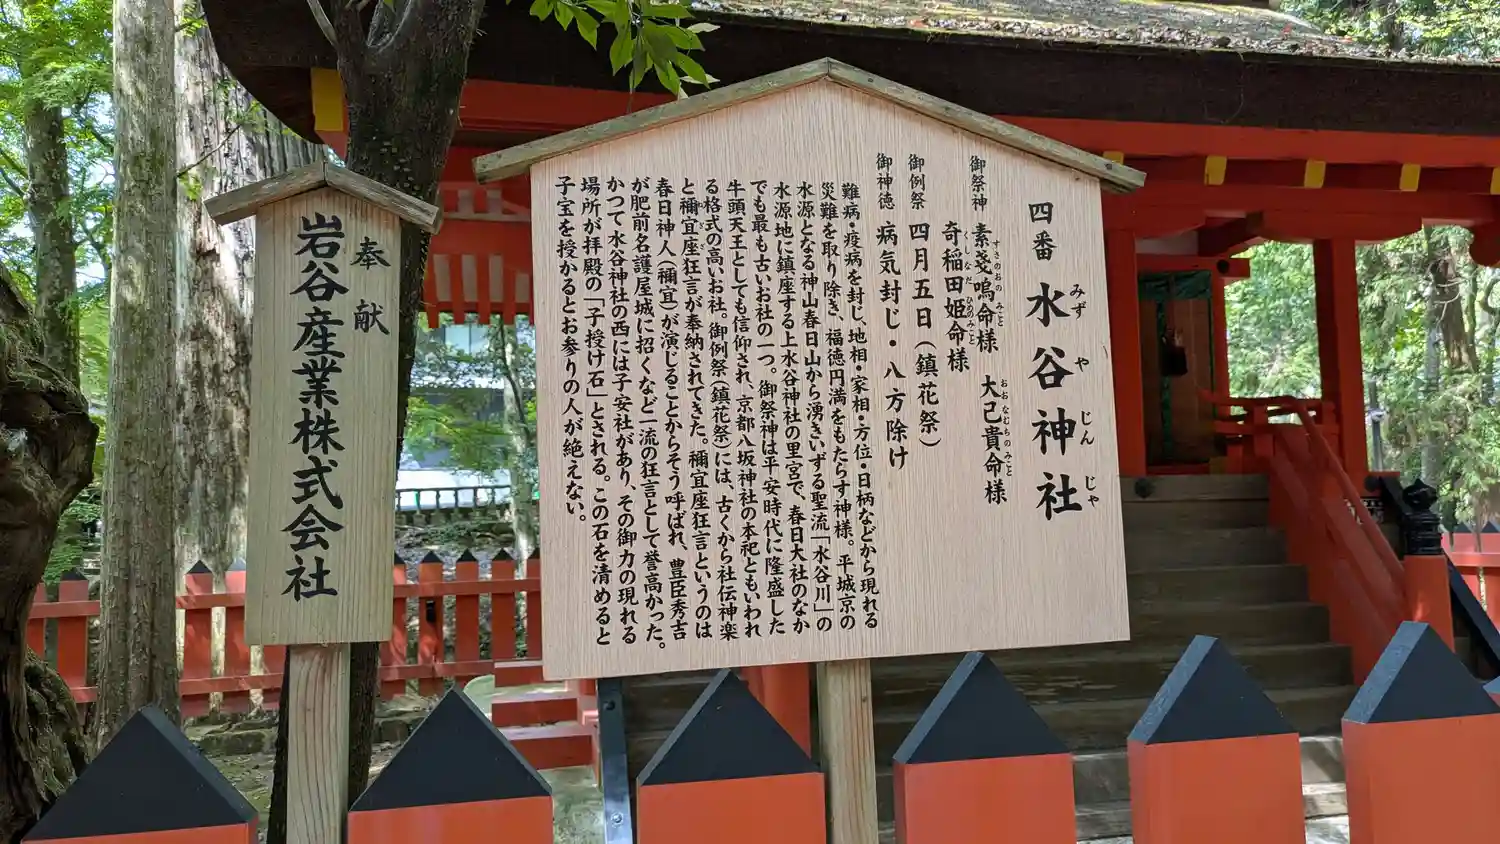 四番 水谷神社
みずやじんじゃ
御祭神 素戔嗚命様 大己貴命様
すさのおのみこと おおなむちのみこと
奇稲田姫命様
くしなだひめのみこと
御例祭 四月五日(鎮花祭)
御神徳 病気封じ・八方除け
難病・疫病を封じ、地相・家相・方位・日柄などから現れる
災難を取り除き、福徳円満をもたらす神様。平城京の
水源となる神山春日山から湧きいずる聖流「水谷川」の
水源地に鎮座する上水谷神社の里宮で、春日大社のなか
でも最も古いお社の一つ。御祭神は平安時代に隆盛した
牛頭天王としても信仰され、京都八坂神社の本祀ともいわれ
る格式の高いお社。御例祭(鎮花祭)には、古くから社伝神楽
と禰宜座狂言が奉納されてきた。禰宜座狂言というのは
ねぎ
春日神人(禰宜)が演じることからそう呼ばれ、豊臣秀吉
が肥前名護屋城に招くなど一流の狂言として誉高かった。
かつて水谷神社の西には子安社があり、その御力の現れる
場所が拝殿の「子授け石」とされる。この石を清めると
子宝を授かるとお参りの人が絶えない。
奉献
岩谷産業株式会社